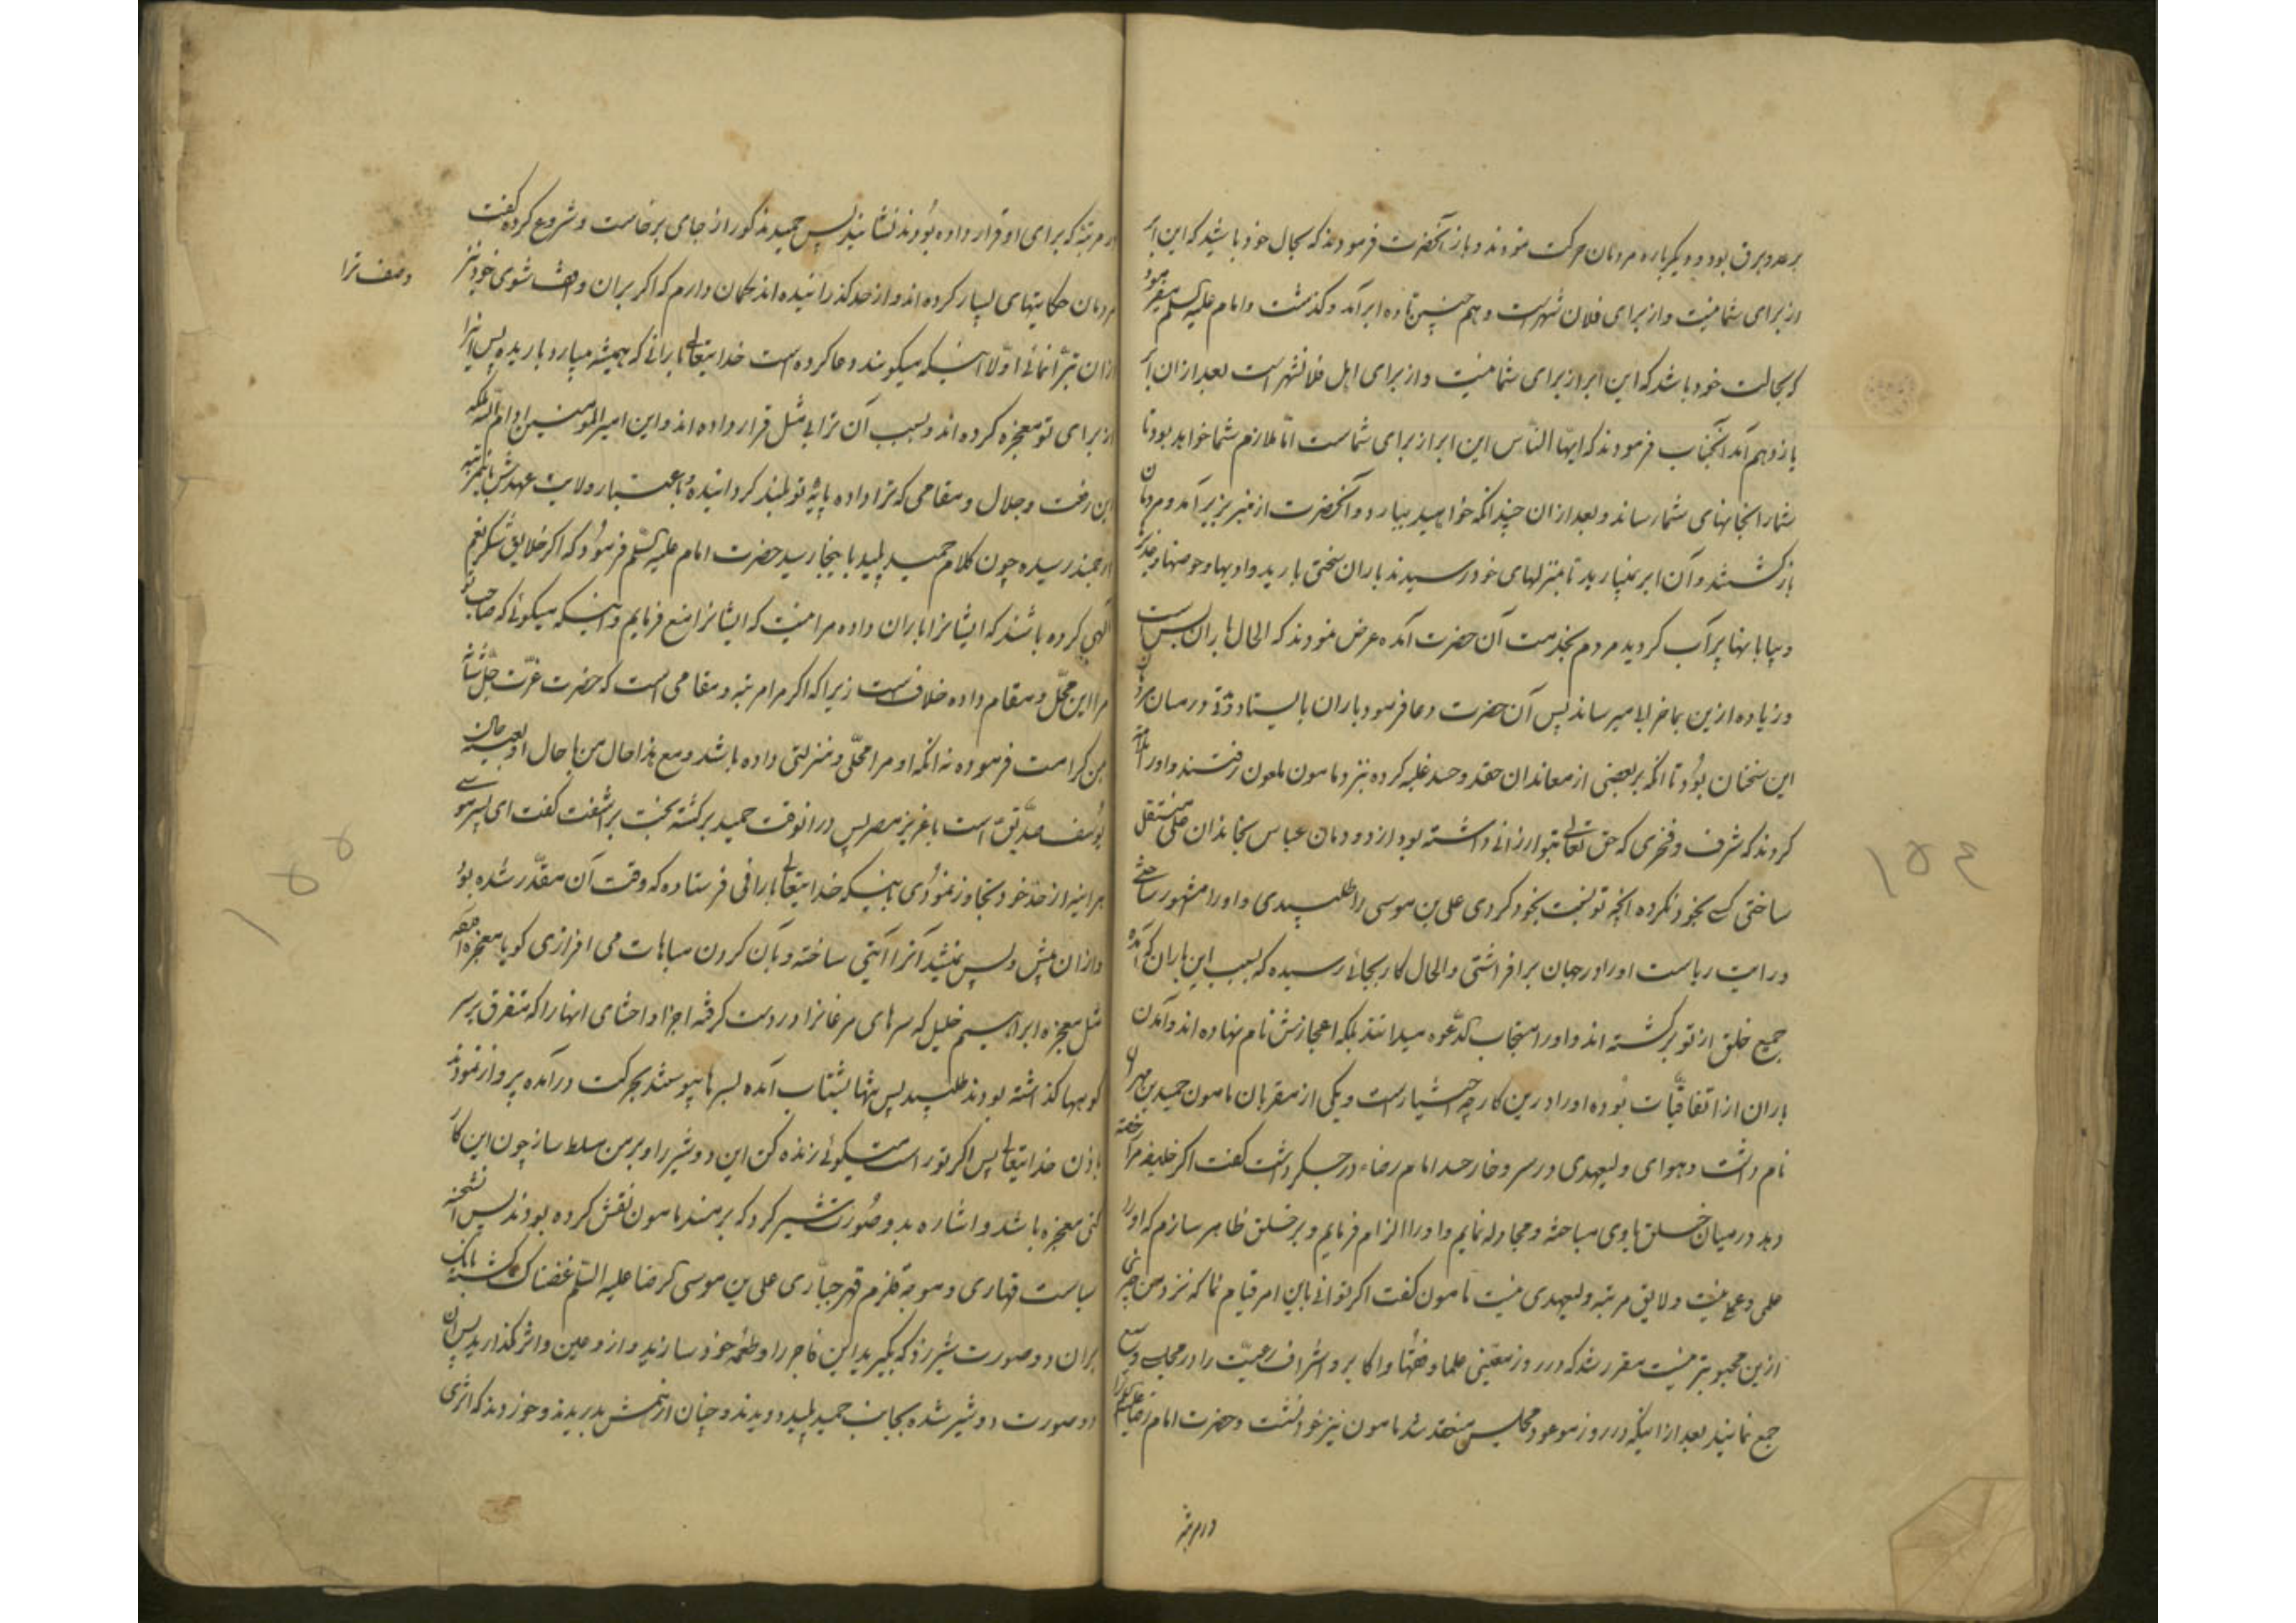 برعد و برق بود و دیگرباره مردمان حرکت نمودند و باز آنحضرت فرمودند که بحال خود باشید که این ابر
از برای شما نیست و از برای فلان شهرست و هم چنین تا ده ابر آمد و گذشت و امام علیه السلم میفرمود
که بحالت خود باشد که این ابر از برای شما نیست و از برای اهل فلانشهر است بعد از ان ابر
یازدهم آمد آنجناب فرمودند که ایها الناس این ابر از برای شماست اما ملازم شما خواهد بود تا
شما را بخانهای شما رساند و بعد از ان چندانکه خواهید ببارد و آنحضرت از منبر بزیر آمد و مردمان
بازگشتند و آن ابر نمیبارید تا بمنزلهای خود رسیدند باران سختی بارید و ادیها و حوضها و
و بیابانها پر آب گردید مردم بخدمت آن حضرت آمده عرض نمودند که الحال باران بس است
و زیاده ازین بما ضرر میرساند پس آن حضرت دعا فرمود باران بایستاد و در میان مردمان
این سخنان بود تا آنکه بر بعضی از معاندان حقد و حسد غلبه کرده نزد مامون ملعون رفتند و او را
کردند که شرف و فخری که حق تعالی بتو ارزانی داشته بود از دودمان عباس بخاندان علی منتقل
ساختی کسی بخود نکرده آنچه تو نسبت بخود کردی علی بن موسی را طلبیدی و او را مشهور ساختی
و رایت ریاست او را در جهان برافراشتی و الحال کار بجائی رسیده که بسبب این باران که آمده
جمیع خلق از تو برگشته اند و او را مستجاب الدعوه میدانند بلکه اعجازش نام نهاده اند و آمدن
باران از اتفاقیات بوده او را درین کار چه اختیارست و یکی از مقربان مامون حمید بن مهران
نام داشت و هوای ولیعهدی در سر و خار حسد امام رضا در جگر داشت گفت اگر خلیفه مرا رخصت
دهد در میان خلق با وی مباحثه و مجادله نمایم و او را الزام فرمایم و بر خلق ظاهر سازم که او را
علمی و عملی نیست و لایق مرتبه ولیعهدی نیست مامون گفت اگر توانی باین امر قیام نما که نزد من چیزی
ازین محبوبتر نیست مقرر شد که در روز معینی علما و فقها و اکابر و اشراف رعیت را در مجلسی وسیع
جمع نمایند بعد از اینکه در روز موعود مجلس منعقد شد مامون نیز خود نشست و حضرت امام رضا علیه السلم
در مرتبه
۱۵۴
در مرتبه که برای او قرار داده بودند نشانید پس حمید مذکور از جای برخاست و شروع کرده گفت
مردمان حکایتهای بسیار کرده اند و از حد گذرانیده اند گمان دارم که اگر بران واقف شوی خود نیز
وصف ترا
ازان تبرا نمائی اولا اینکه میگویند دعا کرده است خدایتعالی بارانی که همیشه میبارد باریده پس آنرا
از برای تو معجزه کرده اند و بسبب آن ترا بی مثل قرار داده اند و این امیر المومنین ادام الله ملکه
این رفعت و جلال و مقامی که ترا داده پایه تو بلند گردانیده و باعتبار ولایت عهدش باینمرتبه
ارجمند رسیده چون کلام حمید پلید باینجا رسید حضرت امام علیه السلم فرمود که اگر خلایق شکر نعم
الهی کرده باشند که ایشانرا باران داده مرا نیست که ایشانرا منع فرمایم و اینکه میگوئی که صاحب تو
مرا این محل و مقام داده خلاف است زیرا که اگر مرا مرتبه و مقامی است که حضرت عزت جل شانه
بمن کرامت فرموده نه آنکه او مرا محلی و منزلتی داده باشد و مع هذا حال من با حال او بعینه حال
یوسف صدیق است با عزیز مصر پس درانوقت حمید برگشته بخت براشفت گفت ای پسر موسی
هراینه از حد خود تجاوز نمودی باینکه خدایتعالی بارانی فرستاده که وقت آن مقدر شده بود
و ازان پیش و پس نمیشد آنرا آیتی ساخته و بآن کردن مباهات می افرازی گویا معجزه آورده
مثل معجزه ابراهیم خلیل که سرهای مرغانرا در دست گرفته اجزا و احشای انها را که متفرق بر سر
کوهها گذاشته بودند طلبید پس بشتاب آمده بسرها پیوستند بحرکت درآمده پرواز نمودند
باذن خدایتعالی پس اگر تو راست میگوئی زنده کن این دو شیر را و بر من مسلط ساز چون این کار
کنی معجزه باشد و اشاره بدو صورت شیر کرد که بر مسند مامون نقش کرده بودند پس
سیاست قهاری و موجه قلزم قهر جباری علی بن موسی الرضا علیه السلم غضبناک گشته بانک
بران دو صورت شیر زد که بگیرید این فاجر را و طعمه خود سازید و از و عین و اثر نگذارید پس ان
دو صورت دو شیر شده بجانب حمید پلید دویدند و چنان از همش بدریدند و خوردند که اثری
۱۵۵